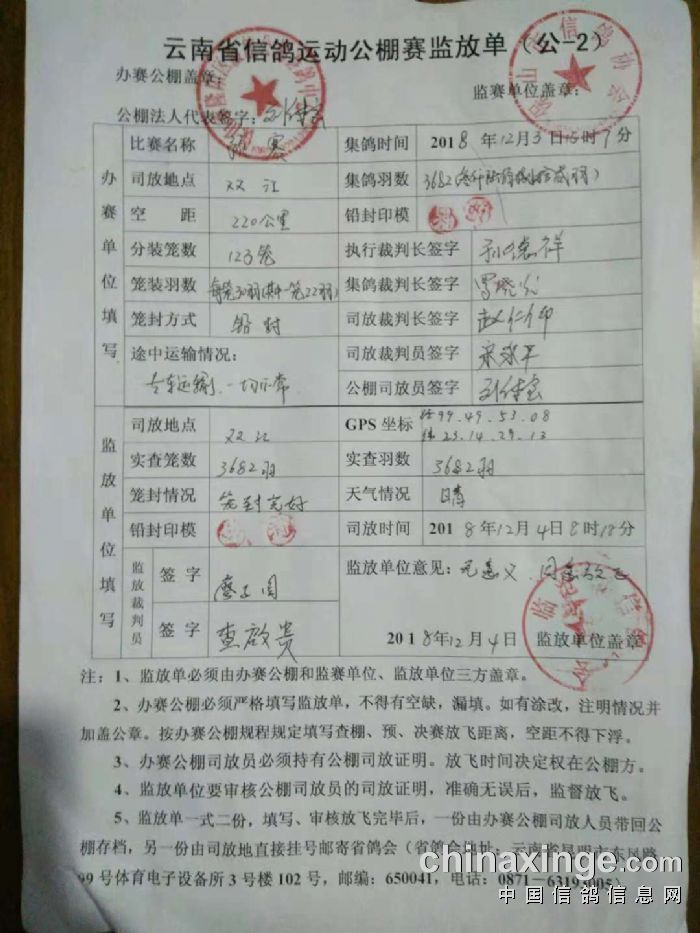 云南省信鸽运动公棚赛监放单（公-2）
办赛公棚盖章：
监赛单位盖章：
公棚法人代表签字：
办赛单位填写
比赛名称
集鸽时间 2018年12月3日15时7分
司放地点 双江
集鸽羽数 3682
空 距 220公里
铅封印模
分装笼数 123笼
执行裁判长签字
笼装羽数 每笼30羽(其中一笼22羽)
集鸽裁判长签字
笼封方式 铅封
司放裁判长签字 赵仁仰
途中运输情况：
司放裁判员签字
专车运输，一切正常
公棚司放员签字
监放单位填写
司放地点 双江
GPS 坐标 经99.49.53.08
纬23.14.29.13
实查笼数 3682羽
实查羽数 3682羽
笼封情况 笼封完好
天气情况 晴
铅封印模
司放时间 2018年12月4日8时18分
监放裁判员
签 字
监放单位意见：无意义 同意放飞
签 字 查啟贵
2018年12月4日 监放单位盖章
注：1、监放单必须由办赛公棚和监赛单位、监放单位三方盖章。
2、办赛公棚必须严格填写监放单，不得有空缺，漏填。如有涂改，注明情况并
加盖公章。按办赛公棚规程规定填写查棚、预、决赛放飞距离，空距不得下浮。
3、办赛公棚司放员必须持有公棚司放证明。放飞时间决定权在公棚方。
4、监放单位要审核公棚司放员的司放证明，准确无误后，监督放飞。
5、监放单一式二份，填写、审核放飞完毕后，一份由办赛公棚司放人员带回公
棚存档，另一份由司放地直接挂号邮寄省鸽会（省鸽会地址：云南省昆明市东风路
99号体育电子设备所3号楼102号，邮编：650041，电话：0871-63193005）
chinaxinge.com
中国信鸽信息网